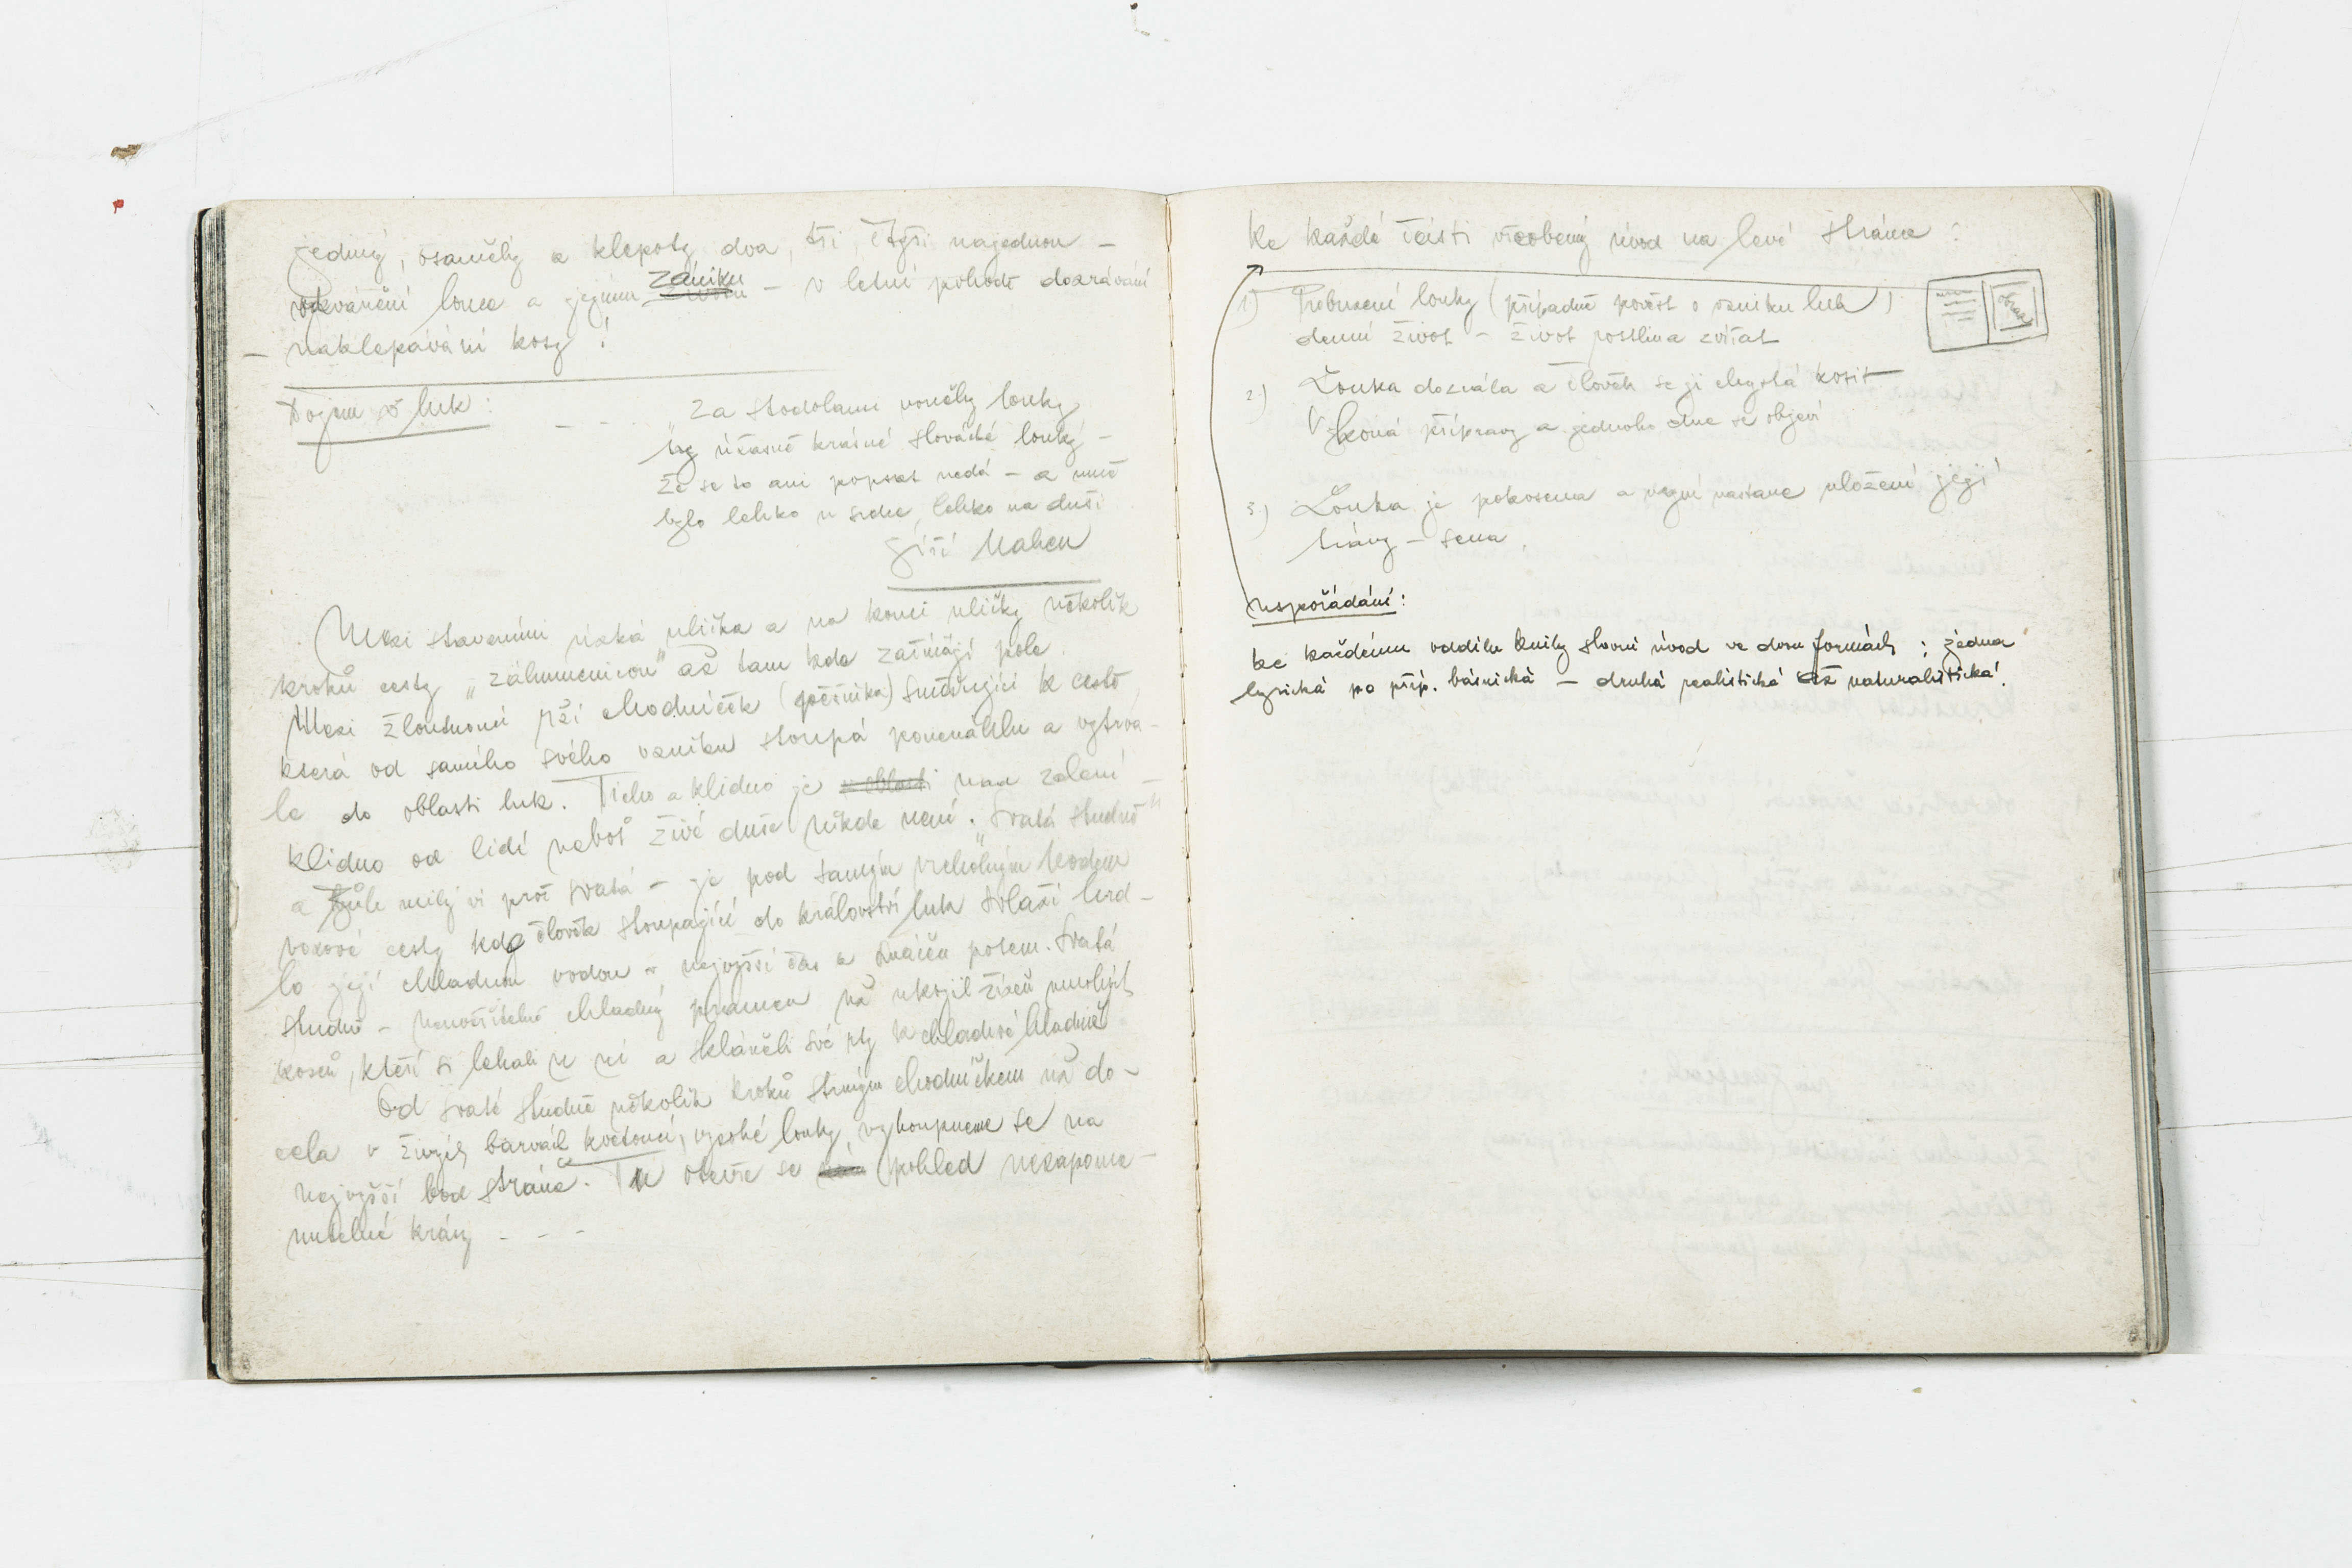 jediný, osamělý a klepoty dva, tři, čtyři najednou –
odzvánění louce a jejímu zániku – v letní pohodě dozrávání
– naklepávání kosy!
Dojem z luk:
– – – Za stodolami voněly louky
ty úžasně krásné slovácké louky –
že se to ani popsat nedá – a mně
bylo lehko u srdce, lehko na duši
Jiří Mahen
Mezi staveními úzká ulička a na konci uličky několik
kroků cesty „záhumenicou" až tam kde začínají pole.
Mezi žloutnoucí rží chodníček (pěšinka) směřující k cestě,
která od samého svého vzniku stoupá ponenáhlu a vytrva-
le do oblasti luk. Ticho a klidno je v oblasti nad zelení –
klidno od lidí neboť živé duše nikde není. „Svatá studně"
a Bůh milý ví proč svatá – je pod samým vrcholným bodem
vozové cesty kde člověk stoupající do království luk svlaží hrd-
lo její chladnou vodou – nejvyšší čas a potem. Svatá
studně – neuvěřitelně chladný pramen už ukojil žízeň mnohých
koseů, kteří si lehali u ní a skláněli své rty k chladivé hladině
Od svaté studně několik kroků strmým chodníčkem už do-
cela v živých barvách kvetoucí, vysoké louky, vyhoupneme se na
nejvyšší bod stráně. Tu otevře se pohled nezapome-
nutelné krásy – – –
ke každé části všeobecný úvod na levé stránce:
1) Probuzení louky (případně pověst o vzniku luk)
denní život – život rostlin a zvířat
obraz
2.) Louka dozrála a člověk se ji chystá kosit
Koná přípravy a jednoho dne se objeví
3.) Louka je pokosena a nyní nastane uložení její
trávy – sena.
uspořádání:
ke každému oddílu knihy slovní úvod ve dvou formách: jedna
lyrická po příp. básnická – druhá realistická až naturalistická.